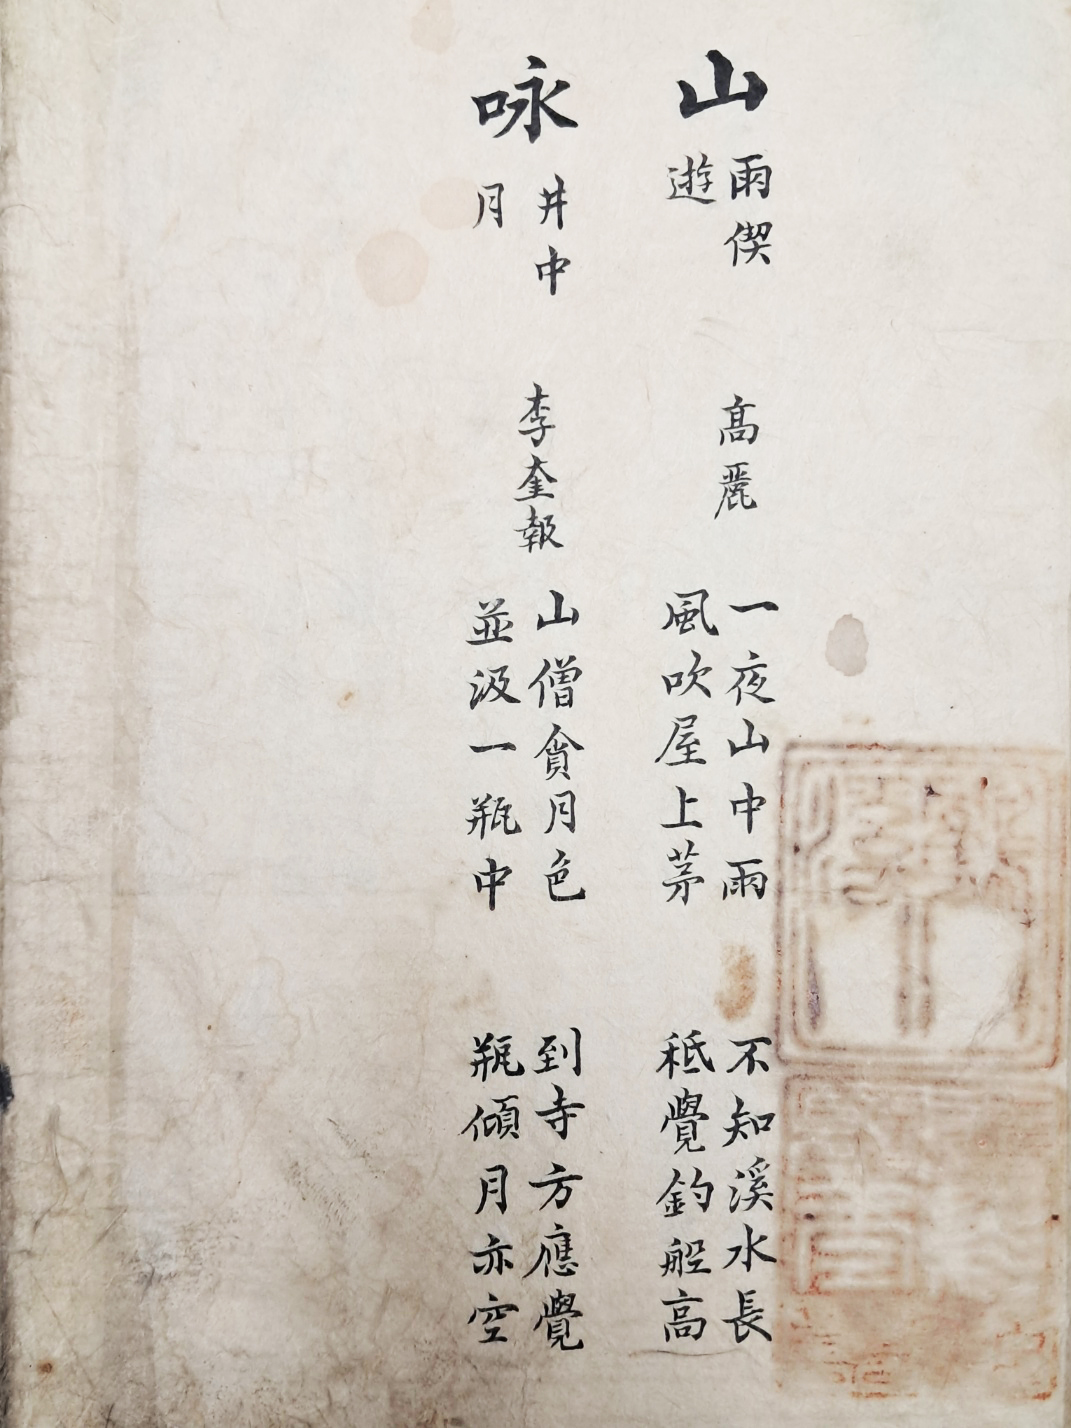 山
雨偰
遊
髙麗
一夜山中雨
風吹屋上茅
不知溪水長
秪覺釣船高
咏
井中
月
李奎報
山僧貪月色
並汲一瓶中
到寺方應覺
瓶傾月亦空